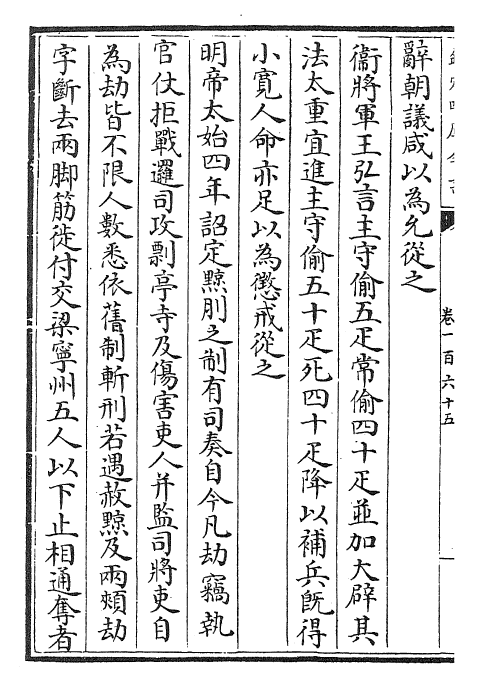 欽定四庫全書
卷一百六十五
辭朝議咸以為允從之
衞將軍王弘言主守偷五疋常偷四十疋並加大辟其
法太重宜進主守偷五十疋死四十疋降以補兵既得
小寛人命亦足以為懲戒從之
明帝太始四年詔定黥刖之制有司奏自今凡劫竊執
官仗拒戰邏司攻剽亭寺及傷害吏人并監司將吏自
為劫皆不限人數悉依舊制斬刑若遇赦黥及兩頰劫
字斷去兩脚筋徙付交梁寧州五人以下止相逼奪者